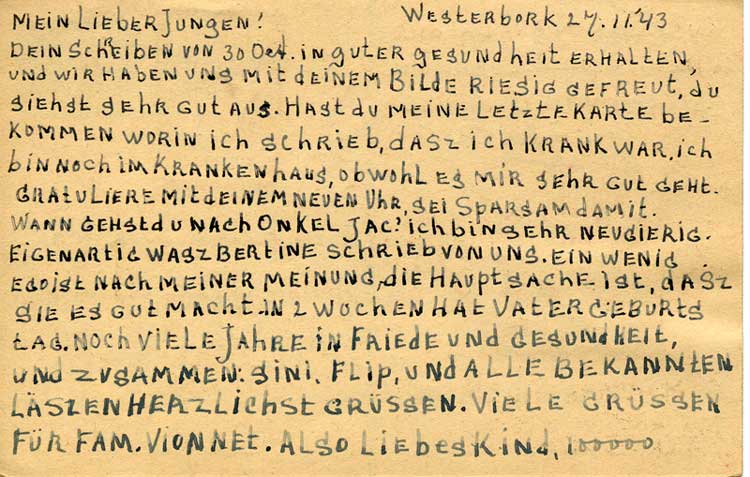 MEIN LIEBER JUNGEN! WESTERBORK 27.11.'43
DEIN SCHREIBEN VON 30 Oct. IN GUTER GESUNDHEIT ERHALTEN,
UND WIR HABEN UNS MIT DEINEM BILDE RIESIG GEFREUT, DU
SIEHST SEHR GUT AUS. HAST DU MEINE LETZTE KARTE BE-
KOMMEN WORIN ICH SCHRIEB, DASZ ICH KRANK WAR, ICH
BIN NOCH IM KRANKENHAUS, OBWOHL ES MIR SEHR GUT GEHT.
GRATULIERE MIT DEINEM NEUEN UHR, SEI SPARSAM DAMIT.
WANN GEHST DU NACH ONKEL JAC? ICH BIN SEHR NEUGIERIG.
EIGENARTIG WASZ BERTINE SCHRIEB VON UNS. EIN WENIG
EGOIST NACH MEINER MEINUNG, DIE HAUPTSACHE IST, DASZ
SIE ES GUT MACHT. IN 2 WOCHEN HAT VATER GEBURTS
TAG. NOCH VIELE JAHRE IN FRIEDE UND GESUNDHEIT,
UND ZUSAMMEN. SINI, FLIP, UND ALLE BEKANNTEN
LÄSZEN HERZLICHST GRÜSSEN. VIELE GRÜSSEN
FÜR FAM. VIONNET. ALSO LIEBES KIND, 100000